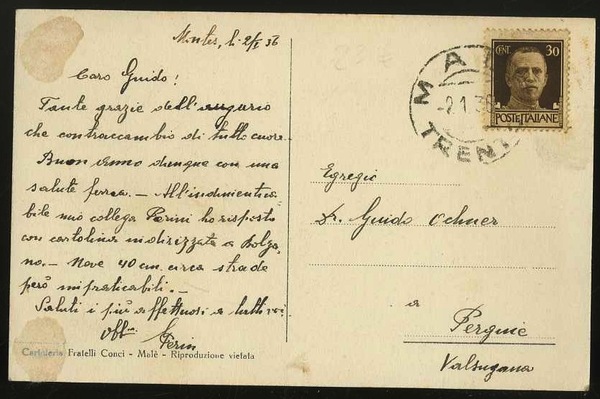 li 2/I 36
Caro Guido!
Tante grazie dell'augurio
che contraccambio di tutto cuore.
Buon anno dunque con una
salute ferrea. — All'indimentica
bile mio collega ho risposto
con cartolina indirizzata a Bolza
no. — Neve 40 cm. circa strade
però impraticabili. —
Saluti i più affettuosi a tutti voi
Cartoleria Fratelli Conci - Malè - Riproduzione vietata
CENT. 30
POSTE ITALIANE
-2.1.36
TRENT
Egregio
Dr. Guido Ochner
a
Pergine
Valsugana